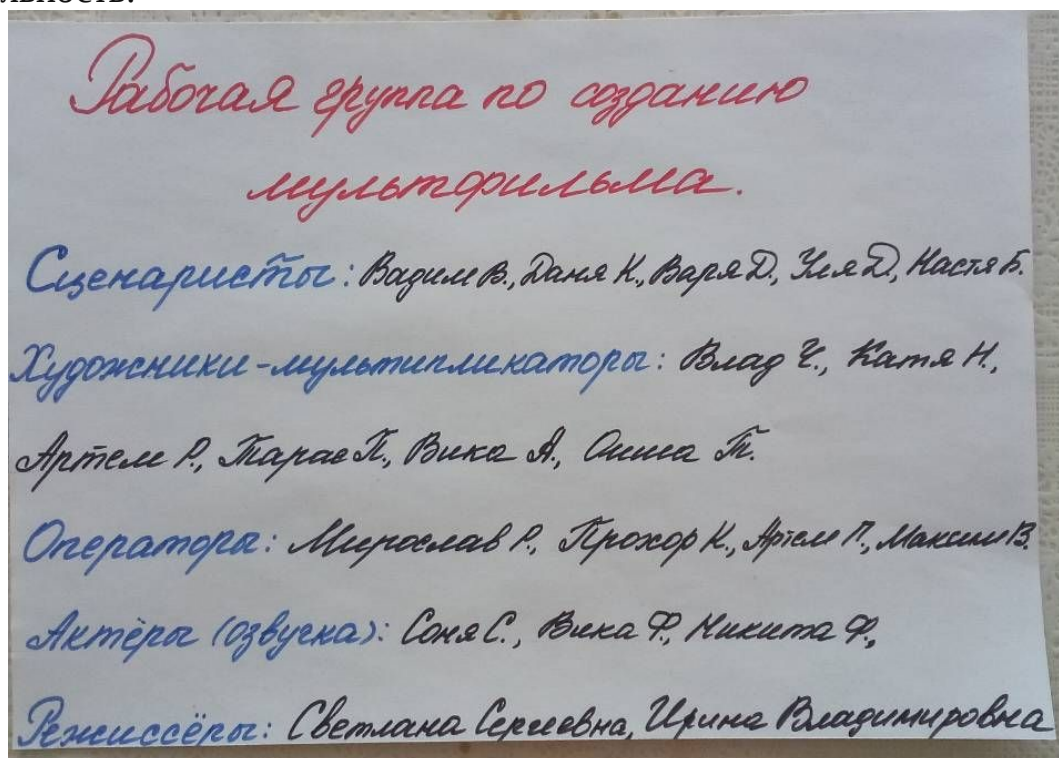 льность.
Рабочая группа по созданию
мультфильма.
Сценаристы: Вадим В., Даня К., Варя Д., Уля Д., Настя Б.
Художники-мультипликаторы: Влад Ч., Катя Н.,
Артем Р., Тарас П., Вика А., Ониша Т.
Операторы: Мирослав Р., Прохор К., Артем П., Максим В.
Актёры (озвучка): Соня С., Вика Ф., Никита Ф.,
Режиссёры: Светлана Сергеевна, Ирина Владимировна